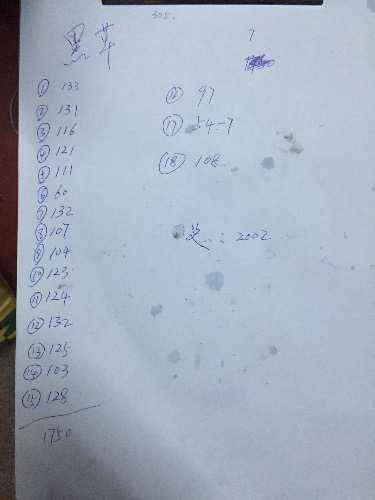 305.
7
① 133
② 131
③ 116
④ 121
⑤ 111
⑥ 60
⑦ 132
⑧ 107
⑨ 104
⑩ 123
⑪ 124
⑫ 132
⑬ 125
⑭ 103
⑮ 128
1750
⑯ 97
⑰ 54-7
⑱ 108
总: 2002